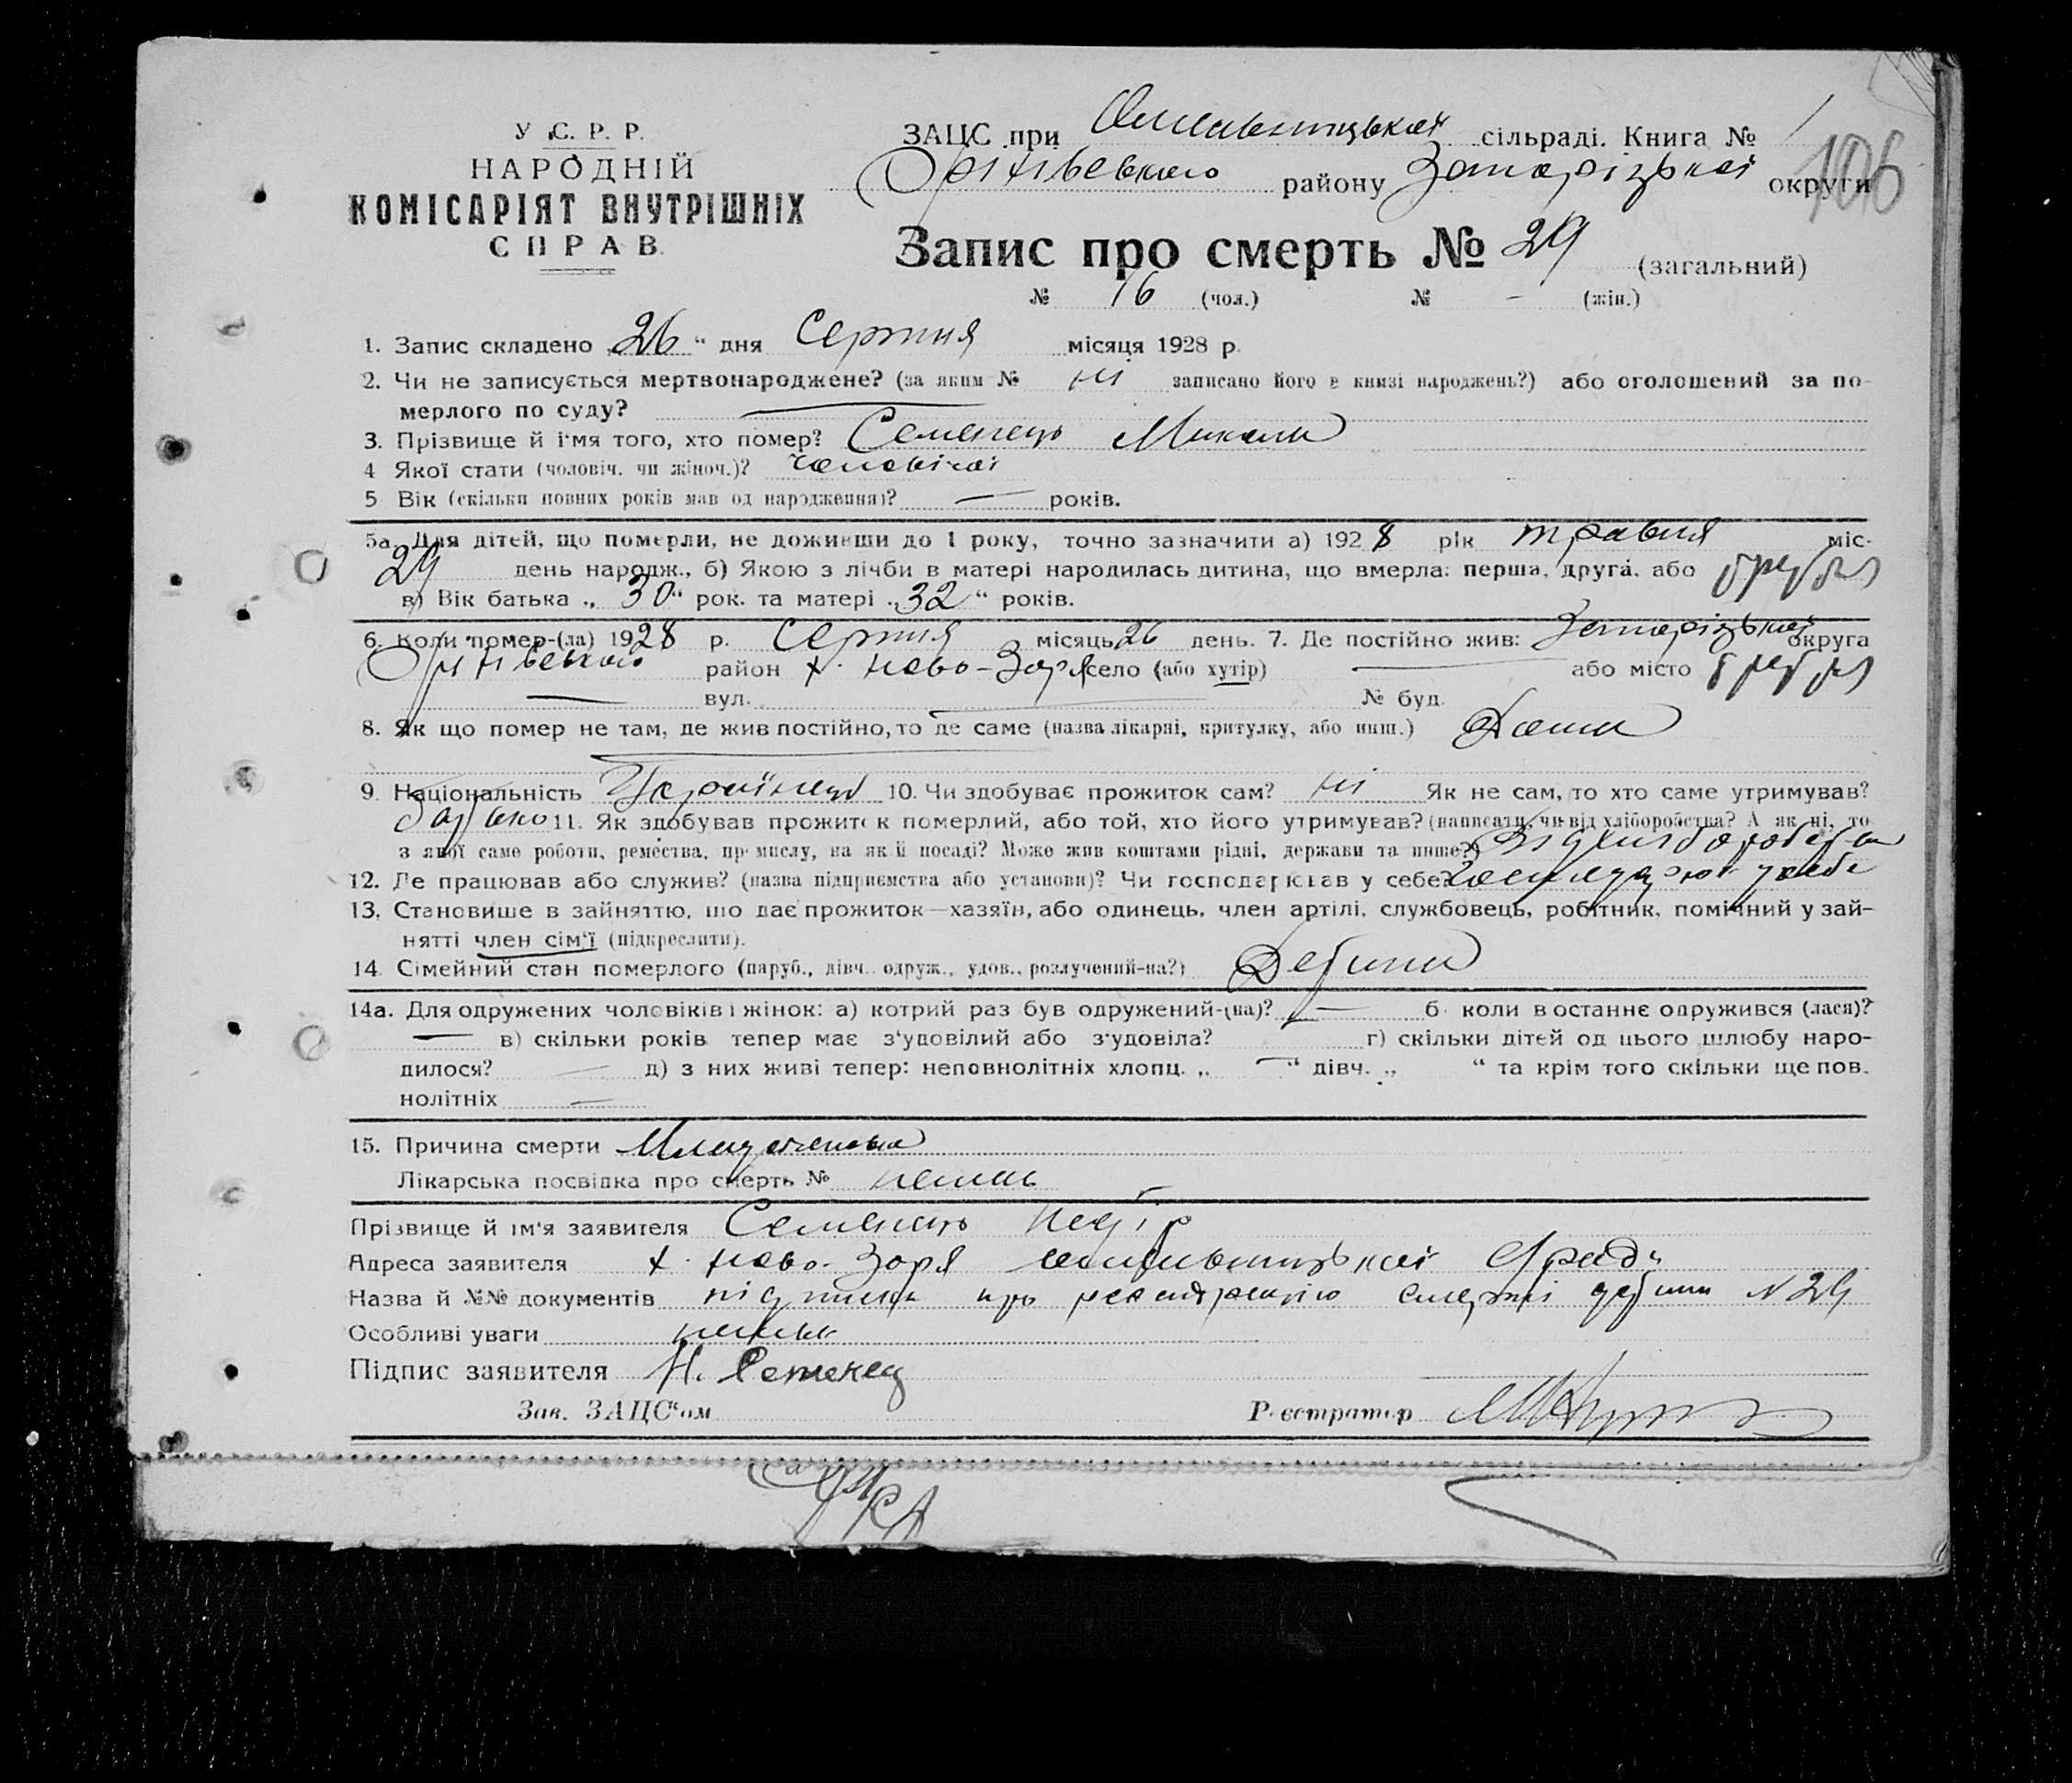 У.С.Р.Р.
НАРОДНІЙ
КОМІСАРІЯТ ВНУТРІШНІХ
СПРАВ.
ЗАЦС при сільраді. Книга № 1
106
Оріхівського району Запорізької округи
Запис про смерть № 29 (загальний)
№ 16 (чол.) № — (жін.)
1. Запис складено „26“ дня Серпня місяця 1928 р.
2. Чи не записується мертвонароджене? (за яким № ні записано його в книзі народжень?) або оголошений за по-
мерлого по суду? —
3. Прізвище й ім'я того, хто помер? Семенець Микола
4 Якої стати (чоловіч. чи жіноч.)? чоловічої
5 Вік (скільки повних років мав од народження)? — років.
5а. Для дітей, що померли, не доживши до 1 року, точно зазначити а) 1928 рік травня міс.
29 день народж., б) Якою з лічби в матері народилась дитина, що вмерла: перша, друга, або
в) Вік батька „30“ рок. та матері „32“ років.
6. Коли помер-(ла) 1928 р. серпня місяць 26 день. 7. Де постійно жив: Запорізької округа
Оріхівського район х. Ново-Зоря село (або хутір) — або місто
— вул. — № буд.
8. Як що помер не там, де жив постійно, то де саме (назва лікарні, притулку, або инш.) Дома
9. Національність Українець 10. Чи здобуває прожиток сам? ні Як не сам, то хто саме утримував?
Батько 11. Як здобував прожиток померлий, або той, хто його утримував? (написати, чи від хліборобства? А як ні, то
з якої саме роботи, ремества, промислу, на якій посаді? Може жив коштами рідні, держави та инше?) Від хліборобства
12. Де працював або служив? (назва підприємства або установи)? Чи господарював у себе? господарює у себе
13. Становище в зайняттю, що дає прожиток—хазяїн, або одинець, член артілі, службовець, робітник, помічний у зай-
нятті член сім'ї (підкреслити).
14. Сімейний стан померлого (паруб., дівч. одруж., удов., розлучений-на?) Детина
14а. Для одружених чоловіків і жінок: а) котрий раз був одружений-(на)? — б. коли востаннє одружився (лася)?
— в) скільки років тепер має з'удовілий або з'удовіла? г) скільки дітей од цього шлюбу наро-
дилося? — д) з них живі тепер: неповнолітніх хлопц. „—“ дівч. „ “ та крім того скільки ще пов.
нолітніх —
15. Причина смерти
Лікарська посвідка про смерть № немає
Прізвище й ім'я заявителя Семенець Педір
Адреса заявителя х. Ново-Зоря с/ради
Назва й №№ документів підписка про реєстрацію смерті детини № 29
Особливі уваги немає
Підпис заявителя Н. Семенец
Зав. ЗАЦС'ом Реєстратор